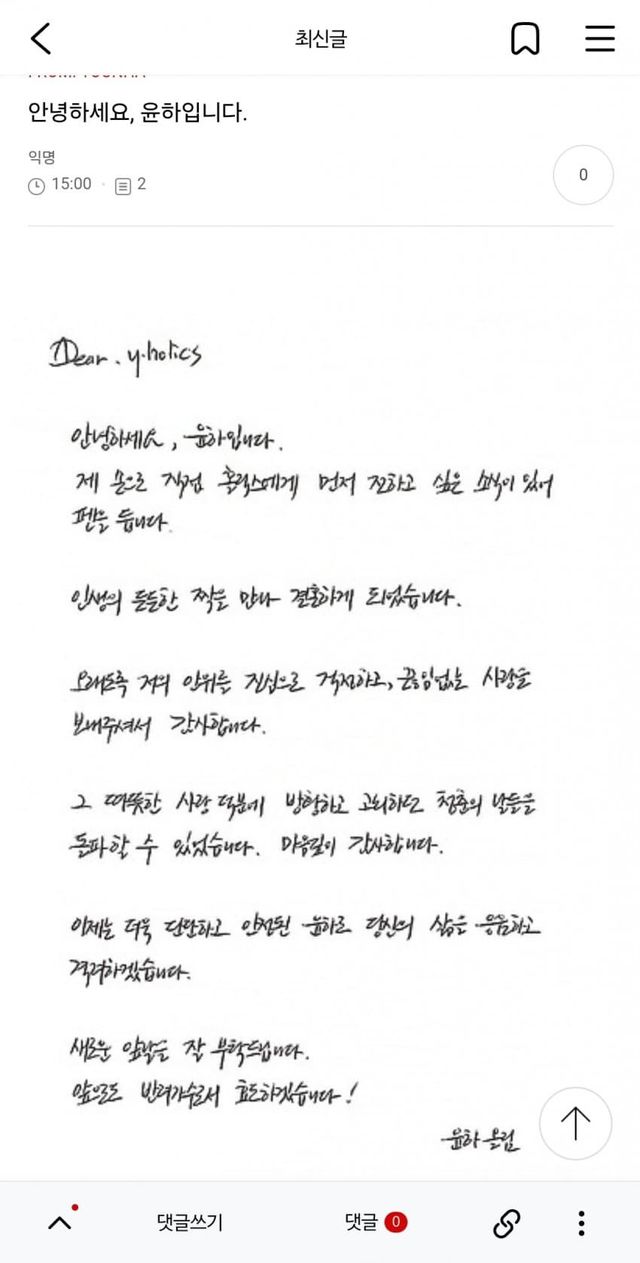 최신글
안녕하세요, 윤하입니다.
익명
15:00 · 2
0
Dear. y.holics
안녕하세요, 윤하입니다.
제 손으로 직접 홀릭스에게 먼저 전하고 싶은 소식이 있어
펜을 듭니다.
인생의 든든한 짝을 만나 결혼하게 되었습니다.
오래도록 저의 안위를 진심으로 걱정하고, 끊임없는 사랑을
보내주셔서 감사합니다.
그 따뜻한 사랑 덕분에 방황하고 고뇌하던 청춘의 날들을
돌파할 수 있었습니다. 마음깊이 감사합니다.
이제는 더욱 단단하고 안정된 윤하로 당신의 삶을 응원하고
격려하겠습니다.
새로운 앞날을 잘 부탁드립니다.
앞으로도 반려가수로서 효도하겠습니다!
윤하 올림
댓글쓰기
댓글 0